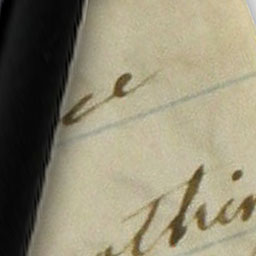 ce
othin